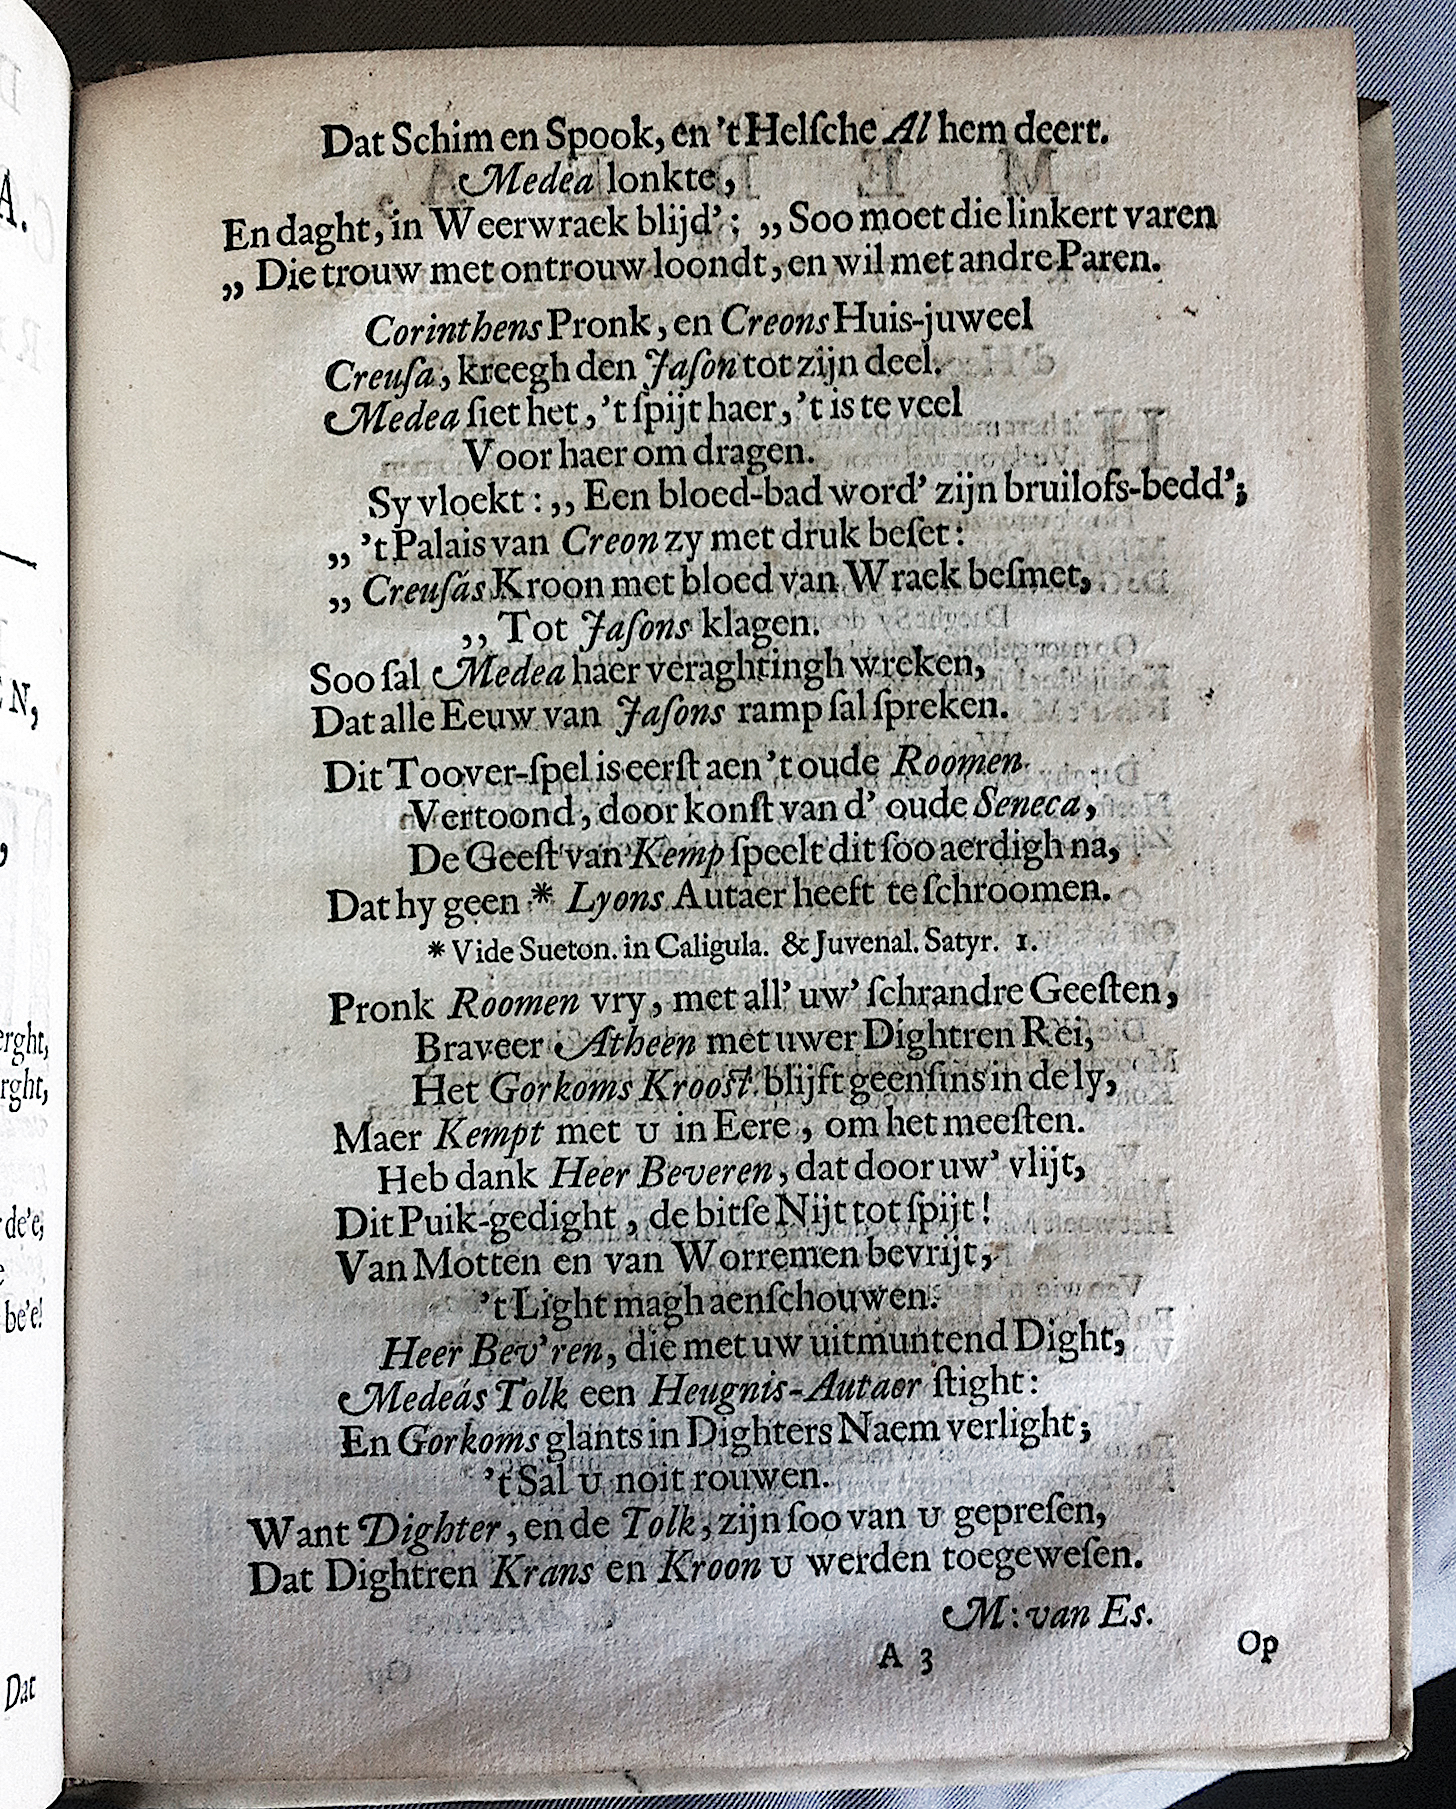 Dat Schim en Spook, en 't Helſche Al hem deert.
Medea lonkte,
En daght, in Weerwraek blijd'; ,, Soo moet die linkert varen
,, Die trouw met ontrouw loondt, en wil met andre Paren.
Corinthens Pronk, en Creons Huis-juweel
Creuſa, kreegh den Jaſon tot zijn deel.
Medea ſiet het, 't ſpijt haer, 't is te veel
Voor haer om dragen.
Sy vloekt: ,, Een bloed-bad word' zijn bruilofs-bedd';
,, 't Palais van Creon zy met druk beſet:
,, Creuſás Kroon met bloed van Wraek beſmet,
,, Tot Jaſons klagen.
Soo ſal Medea haer veraghtingh wreken,
Dat alle Eeuw van Jaſons ramp ſal ſpreken.
Dit Toover-ſpel is eerſt aen 't oude Roomen
Vertoond, door konſt van d' oude Seneca,
De Geeſt van Kemp ſpeelt dit ſoo aerdigh na,
Dat hy geen * Lyons Autaer heeft te ſchroomen.
* Vide Sueton. in Caligula. & Juvenal. Satyr. 1.
Pronk Roomen vry, met all' uw' ſchrandre Geeſten,
Braveer Atheen met uwer Dightren Rei,
Het Gorkoms Krooſt blijft geenſins in de ly,
Maer Kempt met u in Eere, om het meeſten.
Heb dank Heer Beveren, dat door uw' vlijt,
Dit Puik-gedight, de bitſe Nijt tot ſpijt!
Van Motten en van Worremen bevrijt,
't Light magh aenſchouwen.
Heer Bev'ren, die met uw uitmuntend Dight,
Medeás Tolk een Heugnis-Autaer ſtight:
En Gorkoms glants in Dighters Naem verlight;
't Sal u noit rouwen.
Want Dighter, en de Tolk, zijn ſoo van u gepreſen,
Dat Dightren Krans en Kroon u werden toegeweſen.
M: van Es.
A 3
Op
A.
N,
erght,
rght,
de'e;
be'e!
Dat